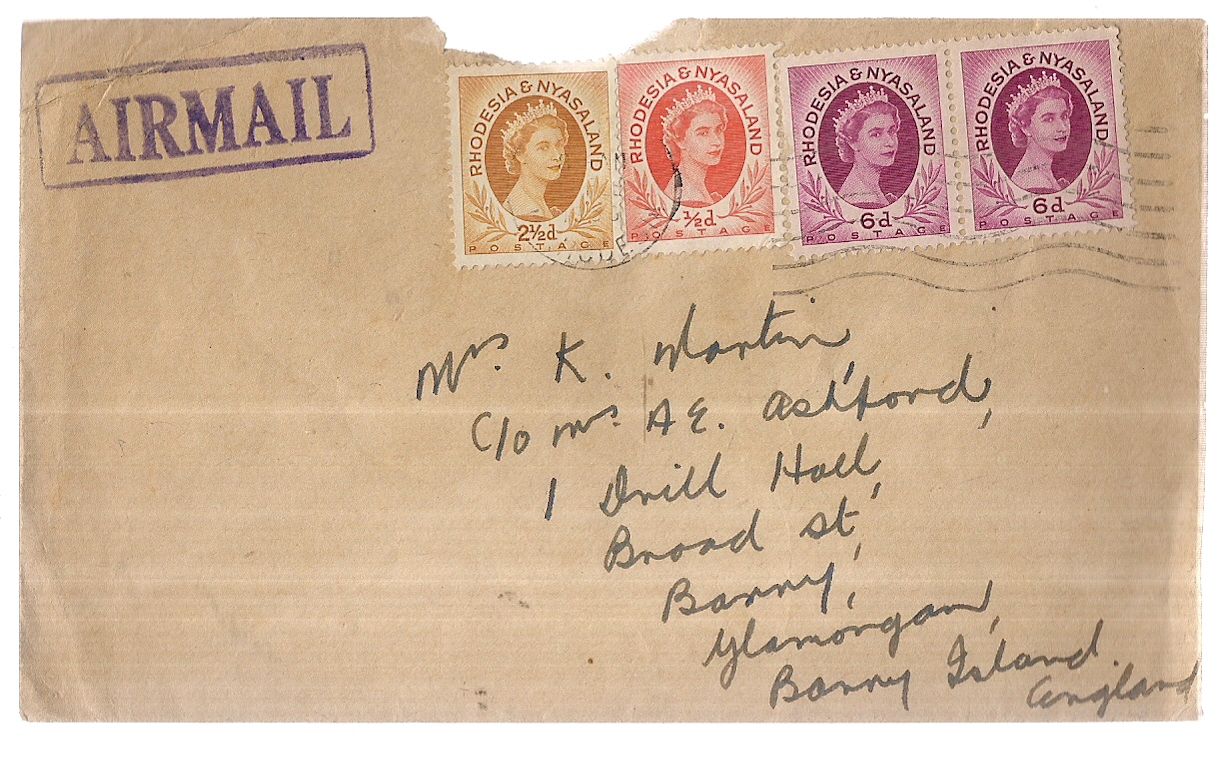 AIRMAIL
RHODESIA & NYASALAND
2½d
POSTAGE
RHODESIA & NYASALAND
½d
POSTAGE
RHODESIA & NYASALAND
6d
POSTAGE
RHODESIA & NYASALAND
6d
POSTAGE
Mrs. K. Martin
C/o Mrs A E. Ashford,
1 Drill Hall,
Broad St,
Barry,
Glamorgan,
Barry Island.
England